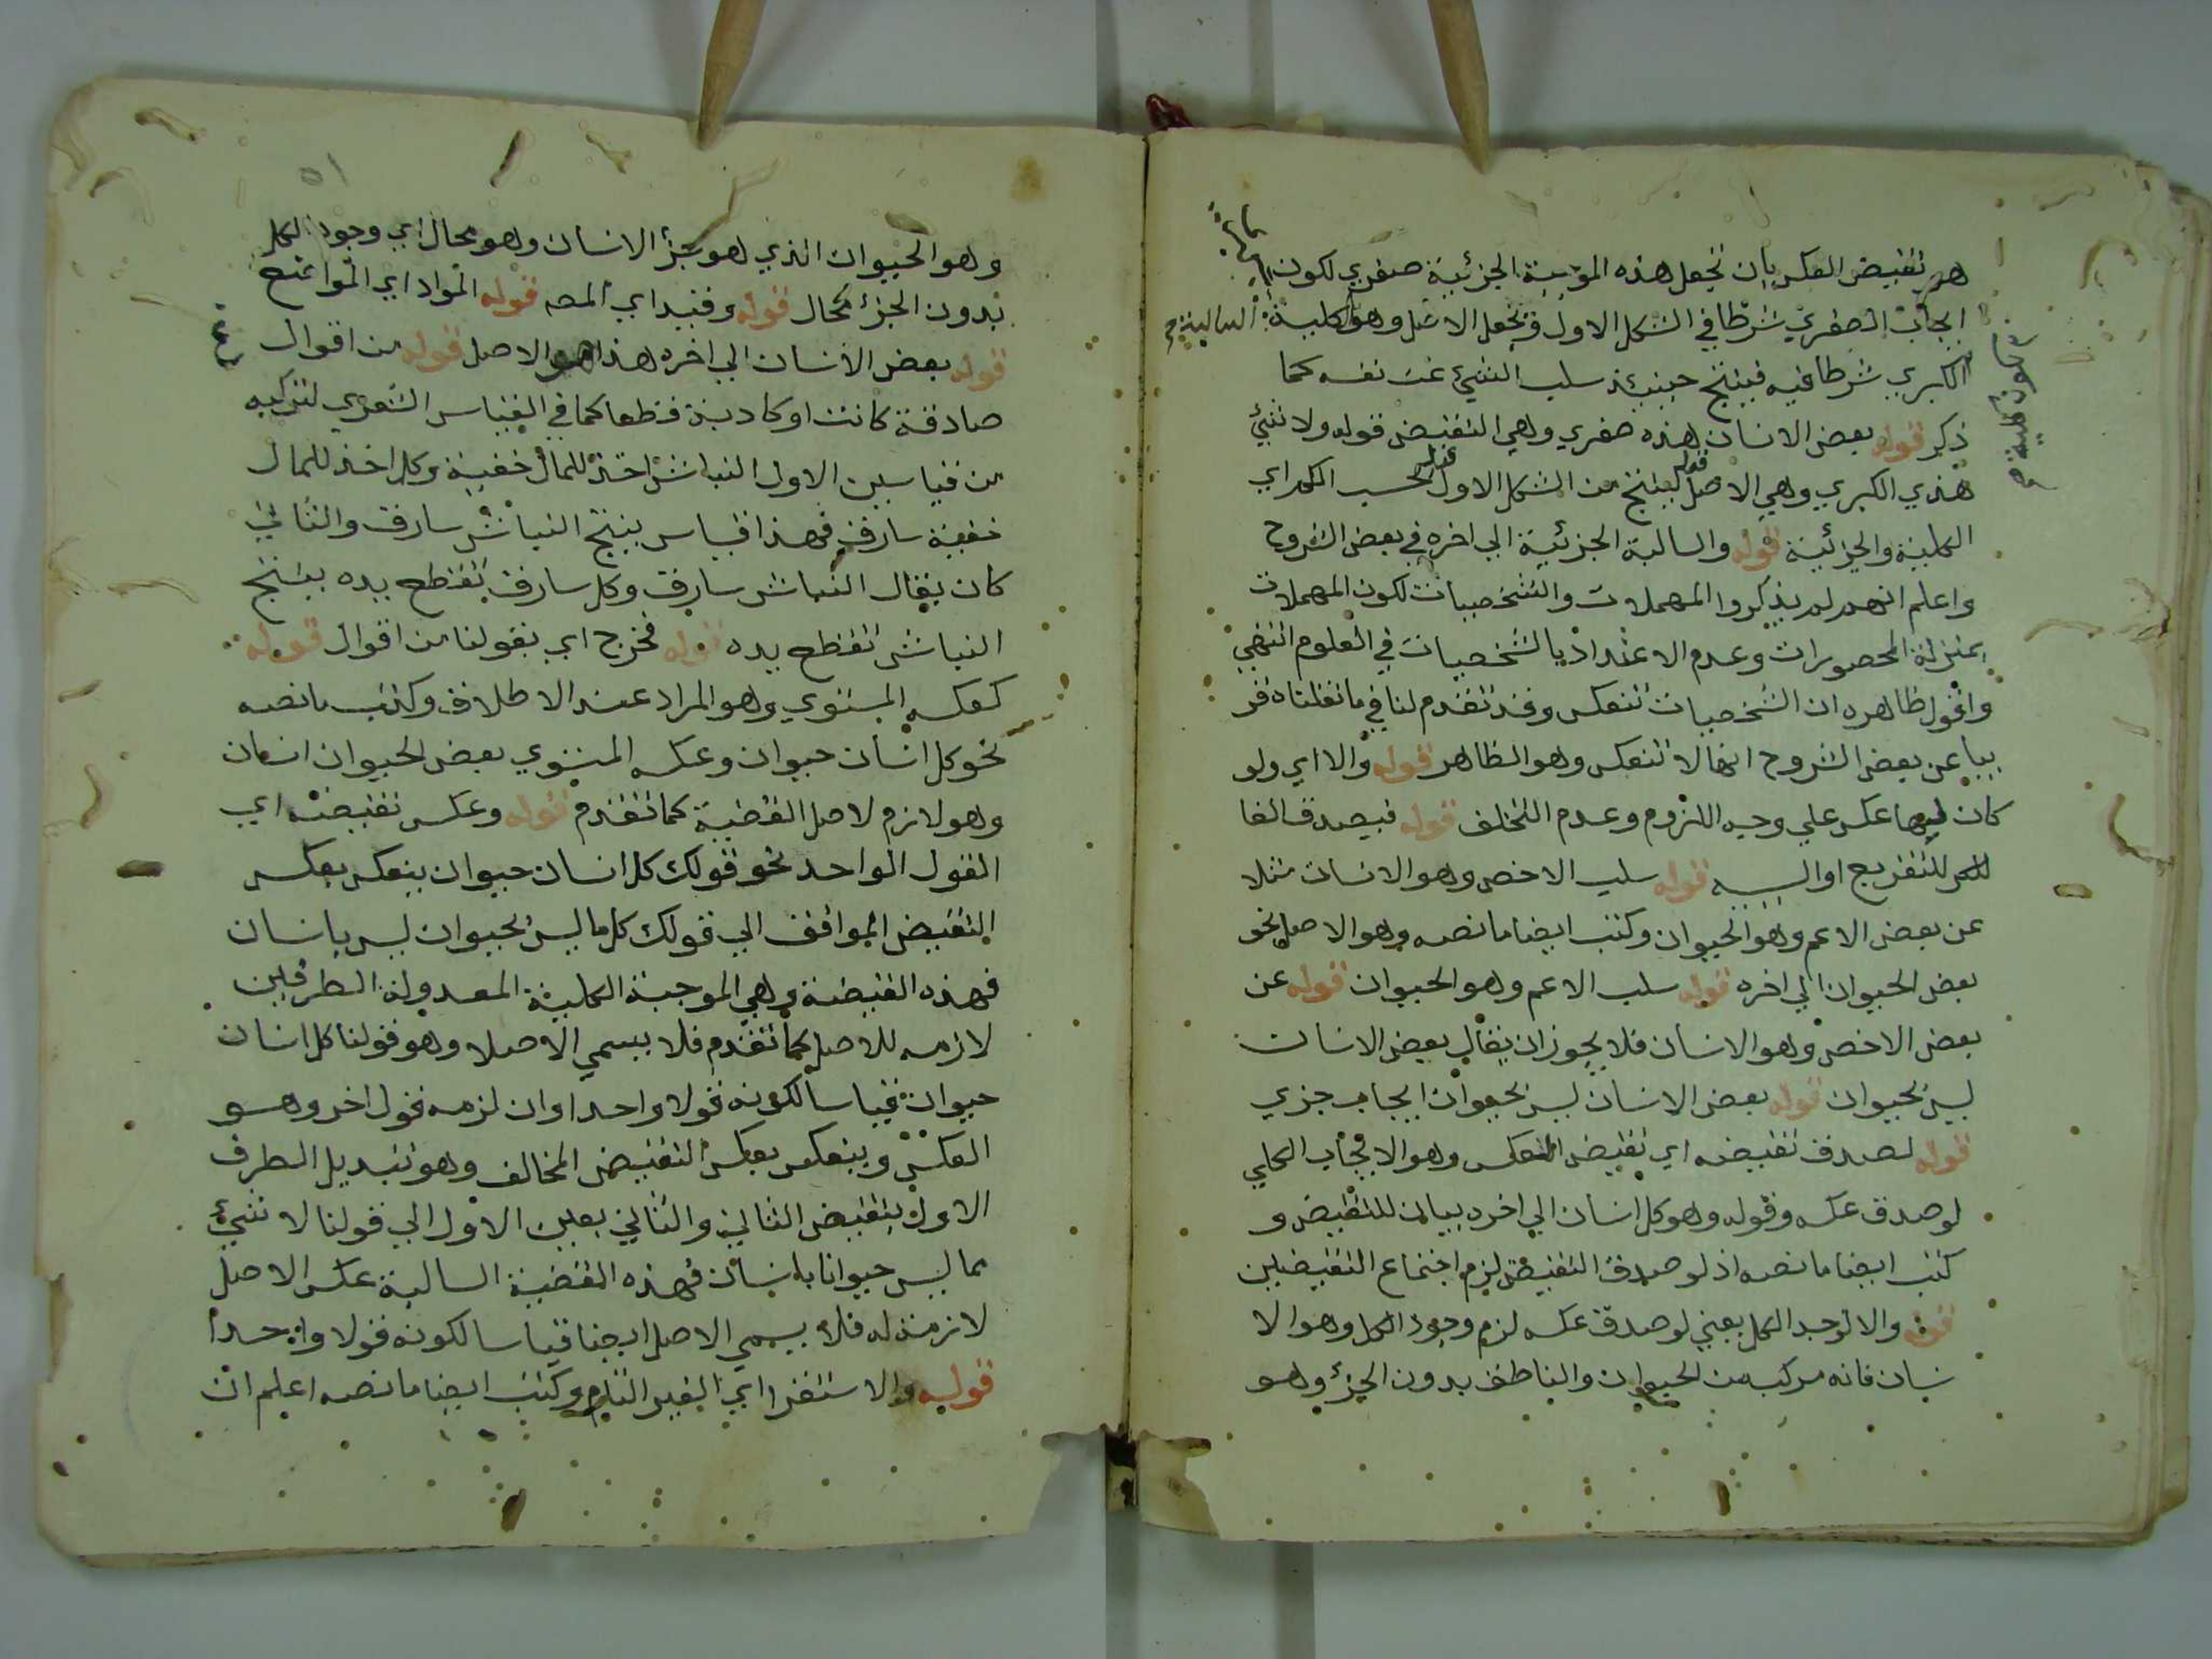 هو نقيض العكس بان تجعل هذه الموجبة الجزئية صغري لكون
ايجاب الصغري شرطا في الشكل الاول وتجعل الاصل وهو الكلية السالبة
الكبري شرطا فيه فينتج حينئذ سلب الشيء عن نفسه كما
ذكر قوله بعض الانسان هذه صغري وهي النقيض قوله ولا شيء
هذي الكبري وهي الاصل قوله ينتج من الشكل الاول قوله بحسب الكم اي
الكلية والجزئية قوله والسالبة الجزئية الي اخره في بعض الشروح
واعلم انهم لم يذكروا المهملات والشخصيات لكون المهملات
بمنزلة المحصورات وعدم الاعتداد بالشخصيات في العلوم انتهي
واقول ظاهره ان الشخصيات تنعكس وقد تقدم لنا في ما نقلناه قر
يبا عن بعض الشروح انها لا تنعكس وهو الظاهر قوله والا اي ولو
كان لها عكس علي وجه اللزوم وعدم التخلف قوله فيصدق الفا
للتفريع او السببيه قوله سلب الاخص وهو الانسان مثلا
عن بعض الاعم وهو الحيوان وكتب ايضا ما نصه وهو الاصل نحو
بعض الحيوان الي اخره قوله سلب الاعم وهو الحيوان قوله عن
بعض الاخص وهو الانسان فلا يجوز ان يقال بعض الانسان
ليس بحيوان قوله بعض الانسان ليس بحيوان ايجاب جزي
قوله لصدق نقيضه اي نقيض العكس وهو الايجاب الكلي
لو صدق عكسه وقوله وهو كل انسان الي اخره بيان للنقيض و
كتب ايضا ما نصه اذ لو صدق النقيض لزم اجتماع النقيضين
قوله والا لوجد الكل يعني لو صدق عكسه لزم وجود الكل وهو الا
نسان فانه مركب من الحيوان والناطق بدون الجزئ وهو
لكون كلية
وهو الحيوان الذي هو جزأ الانسان وهو محال اي وجود الكل
بدون الجزئ محال قوله وقيد اي المص قوله المواد اي المواضع
قوله بعض الانسان الي اخره هذا هو الاصل قوله من اقوال
صادقة كانت او كاذبة قطعا كما في القياس الشعري لتركبه
من قياسين الاول النباش اخذ للمال خفية وكل اخذ للمال
خفية سارق فهذا قياس ينتج النباش سارق والثاني
كان يقال النباش سارق وكل سارق تقطع يده ينتج
النباش تقطع يده قوله فخرج اي بقولنا من اقوال قوله
كعكسه المستوي وهو المراد عند الاطلاق وكتب ما نصه
نحو كل انسان حيوان وعكسه المستوي بعض الحيوان انسان
وهو لازم لاصل القضية كما تقدم قوله وعكس نقيضه اي
القول الواحد نحو قولك كل انسان حيوان ينعكس بعكس
النقيض الموافق الي قولك كل ما ليس بحيوان ليس بانسان
فهذه القيضية وهي الموجبة الكلية المعدولة الطرفين
لازمه للاصل كما تقدم فلا يسمي الاصل وهو قولنا كل انسان
حيوان قياسا لكونه قولا واحدا وان لزمه قول اخر وهو
العكس وينعكس بعكس النقيض المخالف وهو تبديل الطرف
الاول بنقيض الثاني والثاني بعين الاول الي قولنا لا شيء
مما ليس حيوانا بانسان فهذه القضية السالبة عكس الاصل
لازمة له فلا يسمي الاصل ايضا قياسا لكونه قولا واحدا
قوله والاستقرا اي الغير التام وكتب ايضا ما نصه اعلم ان